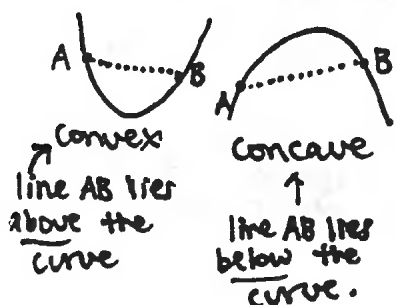 A
B
convex
line AB lies
above the
curve
A
B
concave
line AB lies
below the
curve.